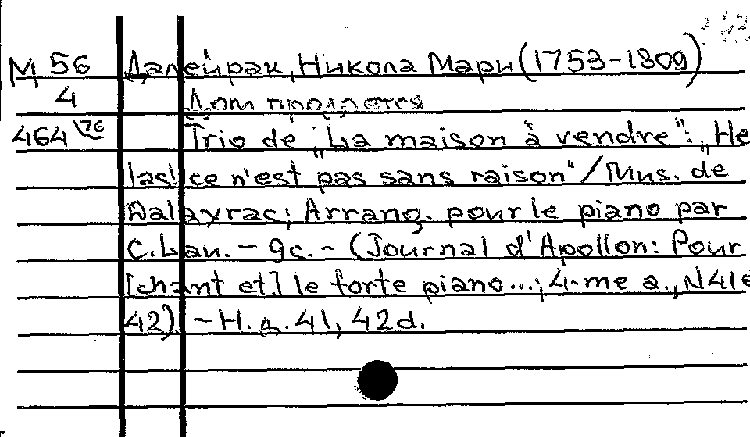 М 56 Далейрак, Никола Мари (1753-1809)
4 Дом продается
464 Trio de „La maison à vendre": „He
las! ce n'est pas sans raison" / Mus. de
Dalayrac; Arrang. pour le piano par
C. Lau. - 9с. - (Journal d'Apollon: Pour
[chant et] le forte piano...; 4-me a., N41e
42). - Н.д. 41, 42d.